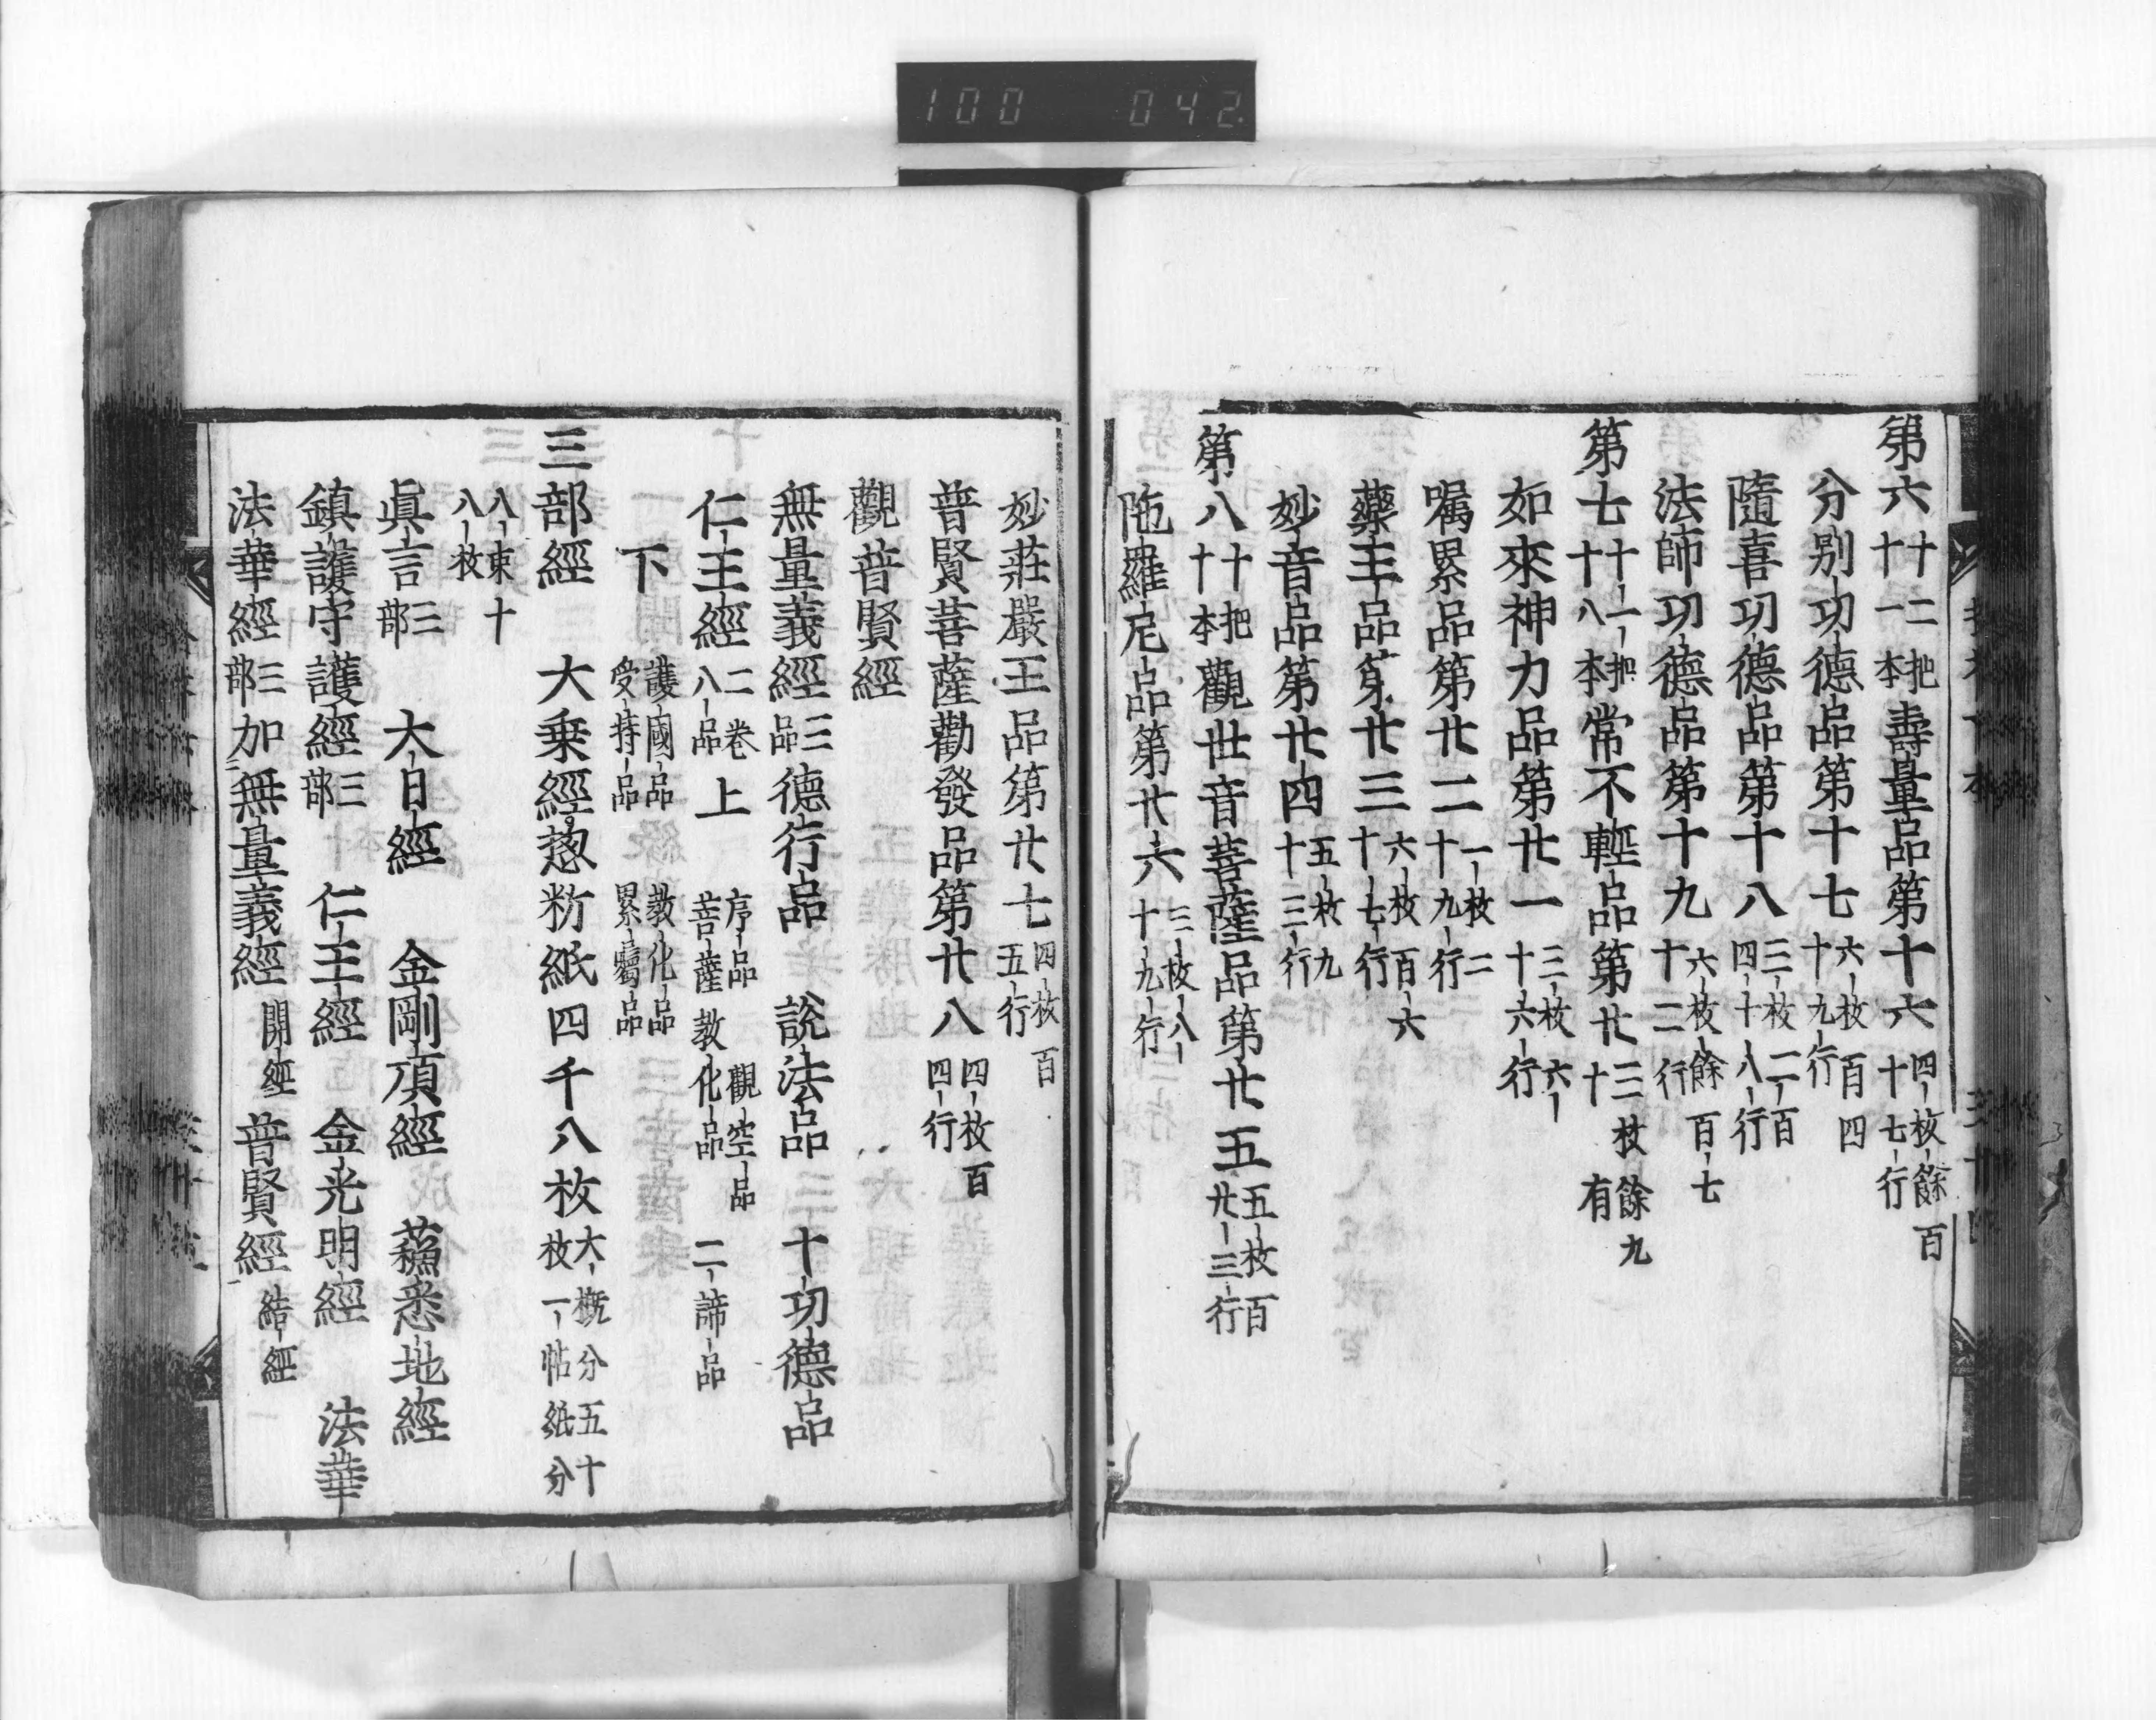 100 042
第六 十二把十一本 壽量品第十六 四枚餘百十七行
分別功德品第十七 六枚百四十九行
隨喜功德品第十八 三枚二百四十八行
法師功德品第十九 六枚餘百七十二行
第七 十一把十八本 常不輕品第廿 三枚餘九十有
如來神力品第廿一 三枚六十六行
囑累品第廿二 一枚二十九行
藥王品第廿三 六枚百六十七行
妙音品第廿四 五枚九十三行
第八 十把十本 觀世音菩薩品第廿五 五枚百廿三行
陁羅尼品第廿六 三枚八十九行
妙莊嚴王品第廿七 四枚百五行
普賢菩薩勸發品第廿八 四枚百四行
觀普賢經
無量義經 三品 德行品 說法品 十功德品
仁王經 二卷八品 上 序品 觀空品 菩薩教化品 二諦品
下 護國品 教化品 受持品 累囑品
三部經 大乗經惣粉紙四千八枚 大槪分五十枚一帖紙分
八束十八枚
眞言三部 大日經 金剛頂經 蘓悉地經
鎮護守護經三部 仁王經 金光明經 法華
法華經三部 加無量義經 開經 普賢經 結經